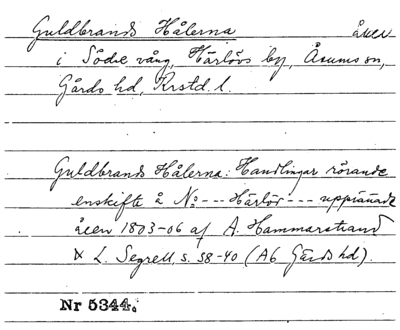 Guldbrands Hålerna åker
i Södre vång, Härlövs by, Åsums sn,
Gärds hd, Krstd. l.
Guldbrands Hålerna: Handlingar rörande
enskifte å No --- Härlöv --- upprättade
åren 1803-06 af A. Hammarstrand
& L. Segrell, s. 38-40 (Ab Gärds hd).
Nr 5344.